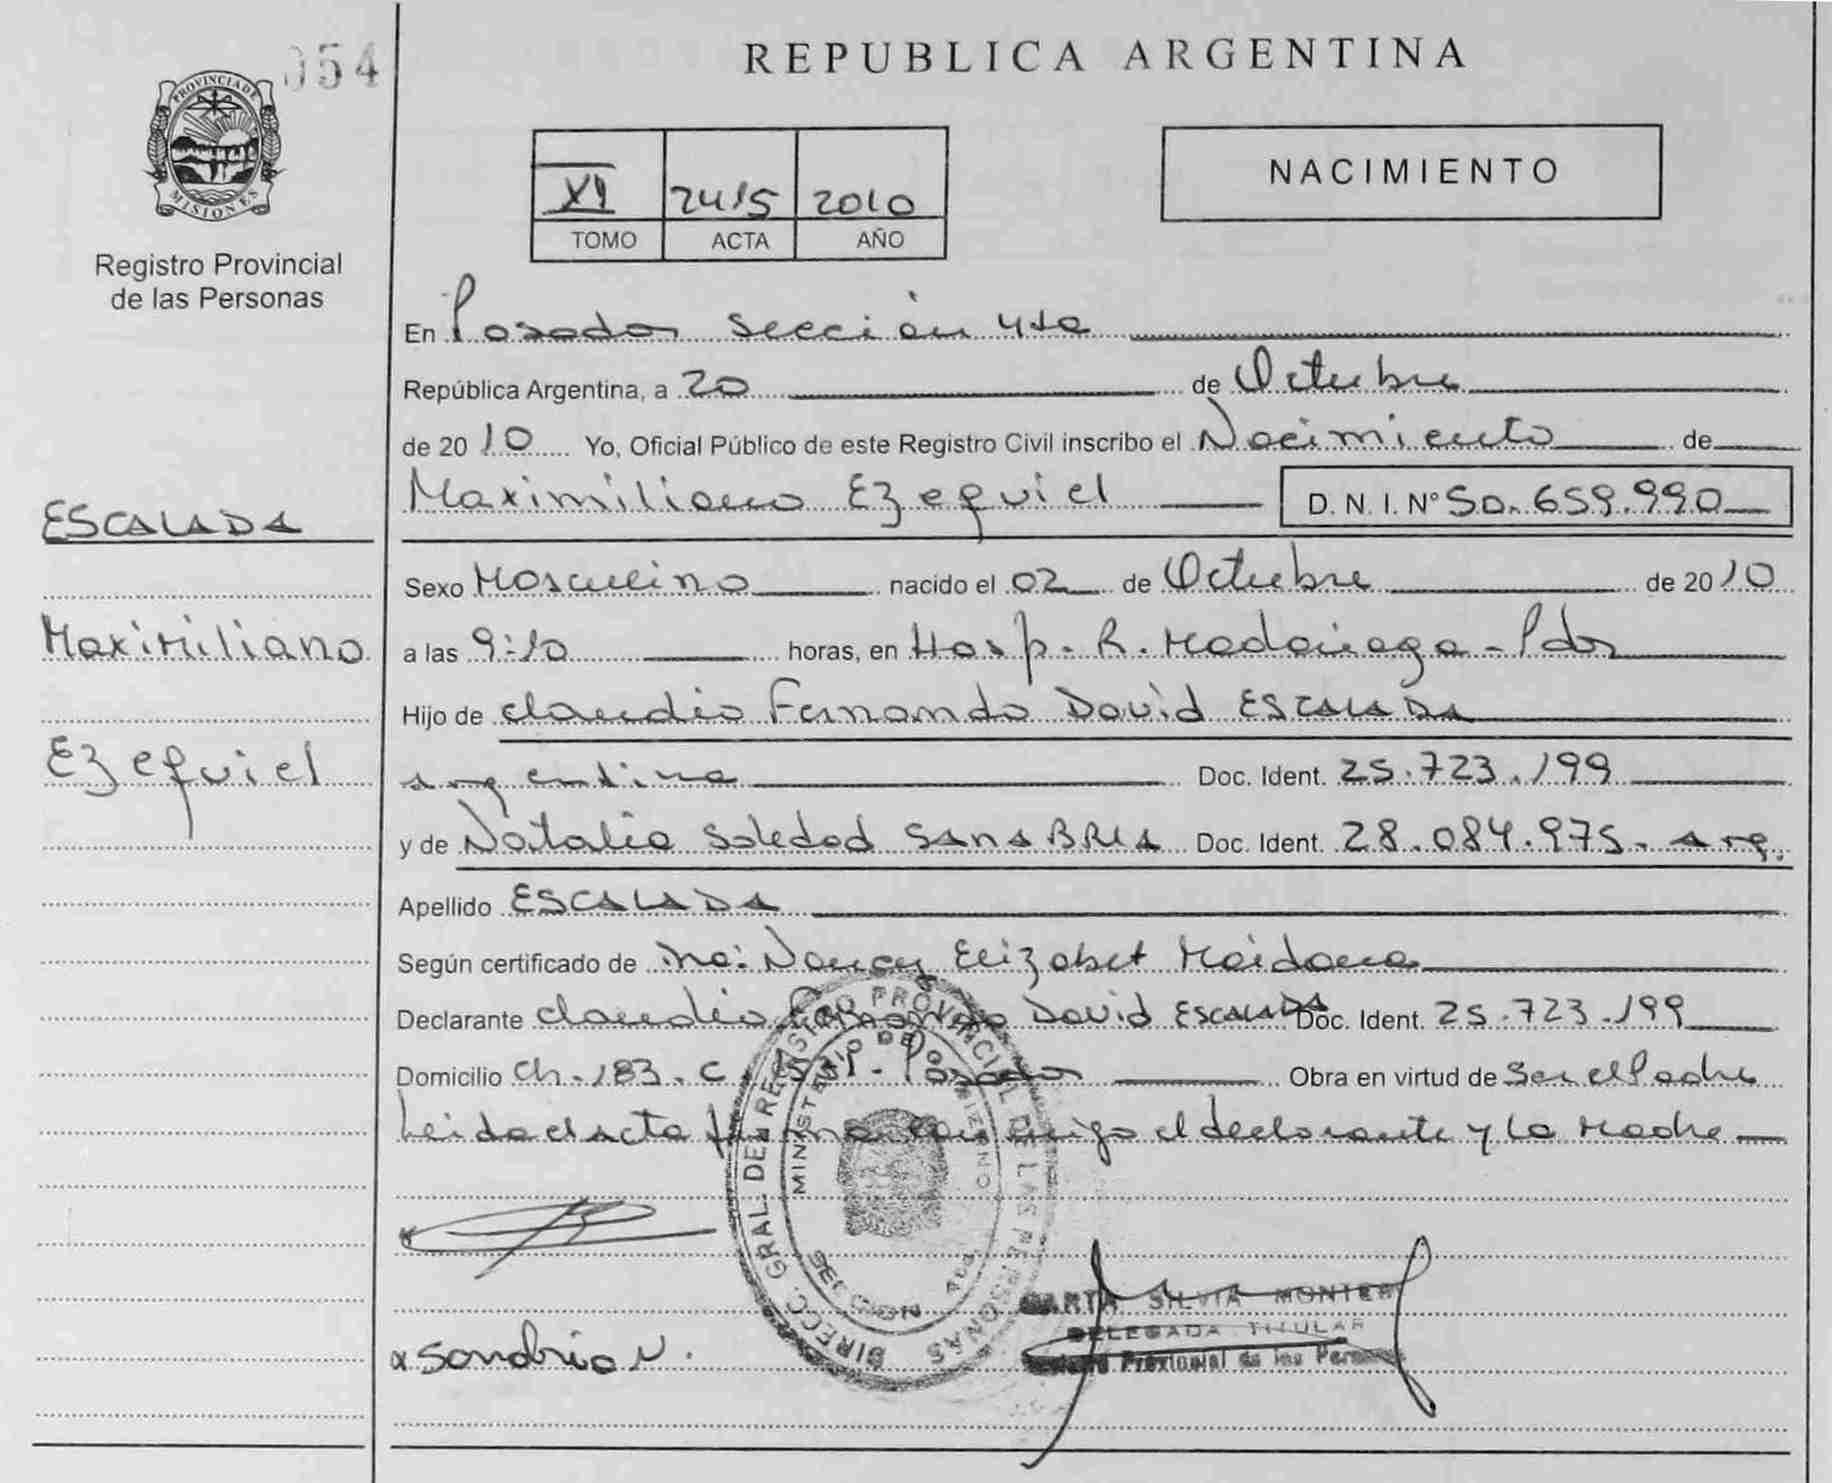 054
PROVINCIA DE
MISIONES
Registro Provincial
de las Personas
ESCALADA
Maximiliano
Ezequiel
REPUBLICA ARGENTINA
XI 2415 2010
TOMO ACTA AÑO
NACIMIENTO
En Posadas Sección 4ta
República Argentina, a 20 de Octubre
de 2010 Yo, Oficial Público de este Registro Civil inscribo el Nacimiento de
Maximiliano Ezequiel D. N. I. N° 50.659.990
Sexo Masculino nacido el 02 de Octubre de 2010
a las 9:10 horas, en Hosp. R. Madariaga - Pdas
Hijo de Claudio Fernando David ESCALADA
argentina Doc. Ident. 25.723.199
y de Natalia Soledad SANABRIA Doc. Ident. 28.084.975. Arg.
Apellido ESCALADA
Según certificado de Nancy Elizabet Maidana
Declarante Claudio Fernando David ESCALADA Doc. Ident. 25.723.199
Domicilio Ch. 183. C Posadas Obra en virtud de Ser el Padre
Leida el acta firma conmigo el declarante y la Madre
DIRECC. GRAL. DEL REGISTRO PROVINCIAL DE LAS PERSONAS
MINISTERIO DE GOBIERNO
x Sanabria N.
MARTA SILVIA MONTER
DELEGADA TITULAR
Provincial de las Personas